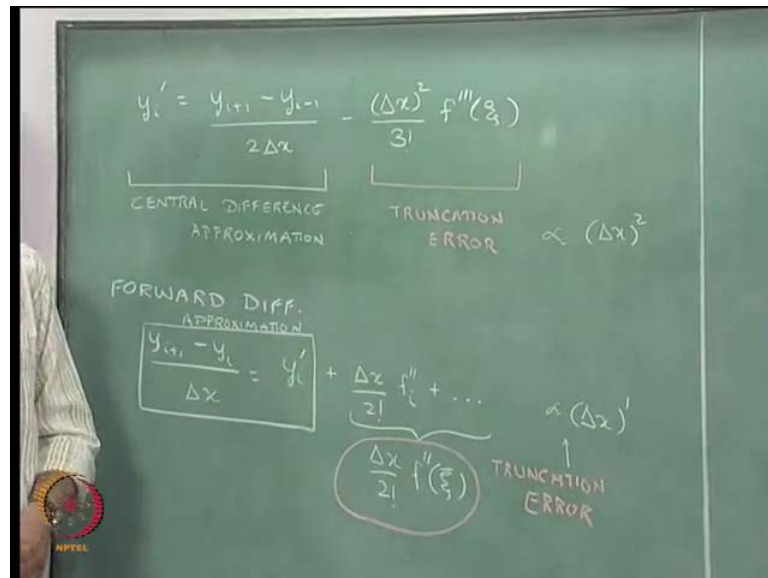 yᵢ' = (yᵢ₊₁ - yᵢ₋₁) / 2Δx - (Δx)² / 3! f'''(ξ)
CENTRAL DIFFERENCE
APPROXIMATION
TRUNCATION
ERROR ∝ (Δx)²
FORWARD DIFF.
APPROXIMATION
(yᵢ₊₁ - yᵢ) / Δx = yᵢ' + Δx / 2! fᵢ'' + ... ∝ (Δx)¹
Δx / 2! f''(ξ̄)
TRUNCATION
ERROR
NPTEL